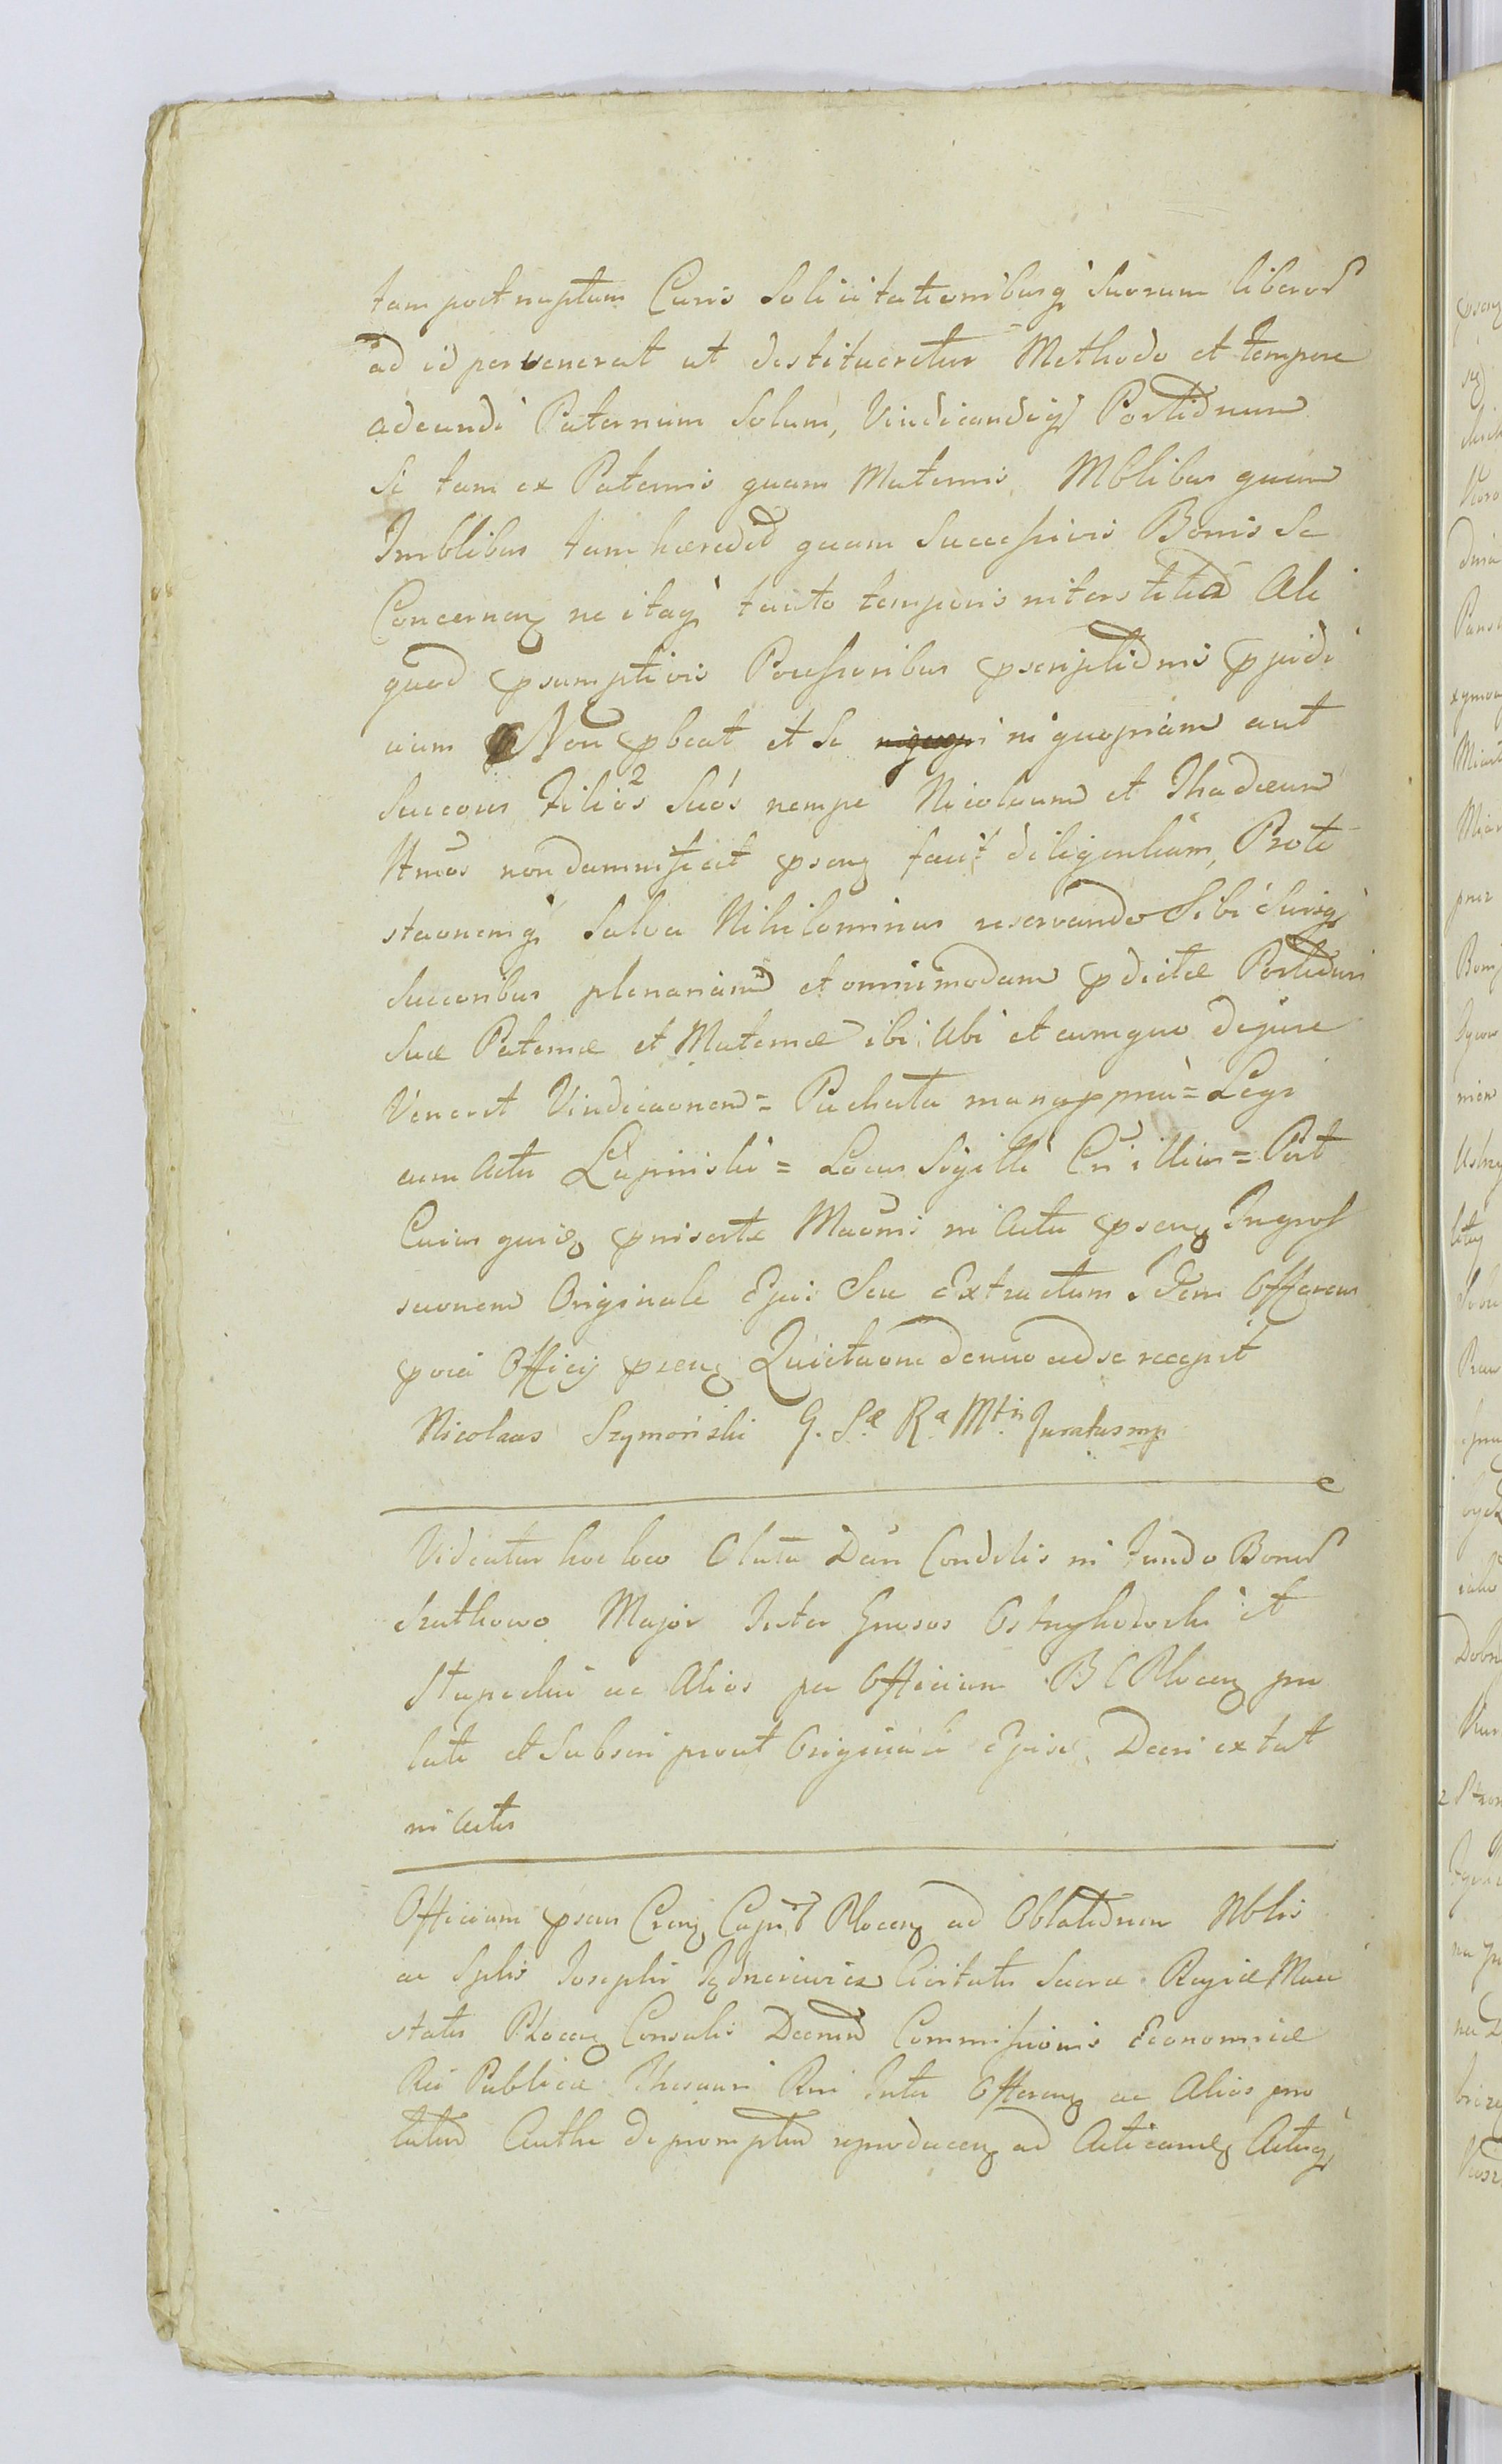 tam post nuptum Curis Solicitationibusq́ Suorum liberor
ad id pervenerat ut destitueretur Methodo et tempore
adeundi Paternum Solum, Vindicandiq Portionum
Se tam ex Paternis quam Maternis Mblibus quam
Imblibus tam hæredit quam Successivis Bonis Se
Concernen ne itaq́ tanto temporis interstitio Ali
quod psumptivis Possessoribus pscriptionis pjudi
cium Non pbeat et Se in quopiam aut
Succores Filios 2 Suos nempe Nicolaum et Thadæum
Ittmos non damnificet psenq facit diligentiam, Prote
staonemq́ Salva Nihilominus reservando Sibi Suisq́
Succoribus plenariam et omnimodam pdictæ Portionis
Suæ Paternæ et Maternæ ibi Ubi et cumquo de jure
Venerit Vindicaonem = Pachata manu ppria = Legi
cum Actu Łapinski = Locus Sigilli = Post
Cuius quid pnisertæ Maonis in Acta psenq Ingros
saonem Originale Ejus Seu Extractum Idem Offerens
Officij psenq Quietaone denuo ad se recepit
Nicolaus Szymoński G. S.æ R.æ Mtis Juratus mp
Videatur hoc loco Oblata Dcri Condilis in Fundo Bonor
Major Inter Gnosos et
ac Alios per Officium Plocen pro
lati et Subscri prout Originale Ejusd. Decri extat
in Actis
Officium psens Plocen ad Oblationem Nblis
ac Splis Josephi Civitatis Sacræ Regiæ Maie
statis Plocen Consulis Decreti Commissionis Economicæ
Rei Publicæ Thesauri Rni Inter Offeren ac Alios pro
lati Authe depromptum reproducen ad Acticand Actisq́